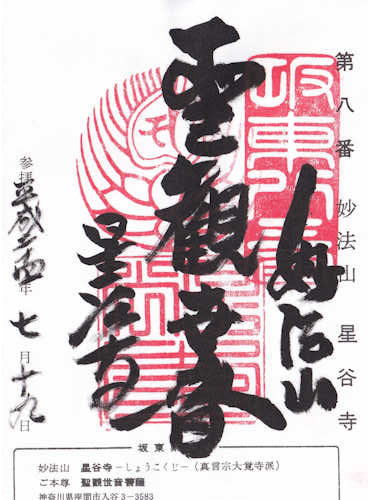 第八番 妙法山 星谷寺
坂東八番
妙法山
聖觀世音
星谷寺
参拝 平成 年 七月十九日
坂東
妙法山 星谷寺－しょうこくじ－（真言宗大覚寺派）
ご本尊 聖観世音菩薩
神奈川県座間市入谷3－3583